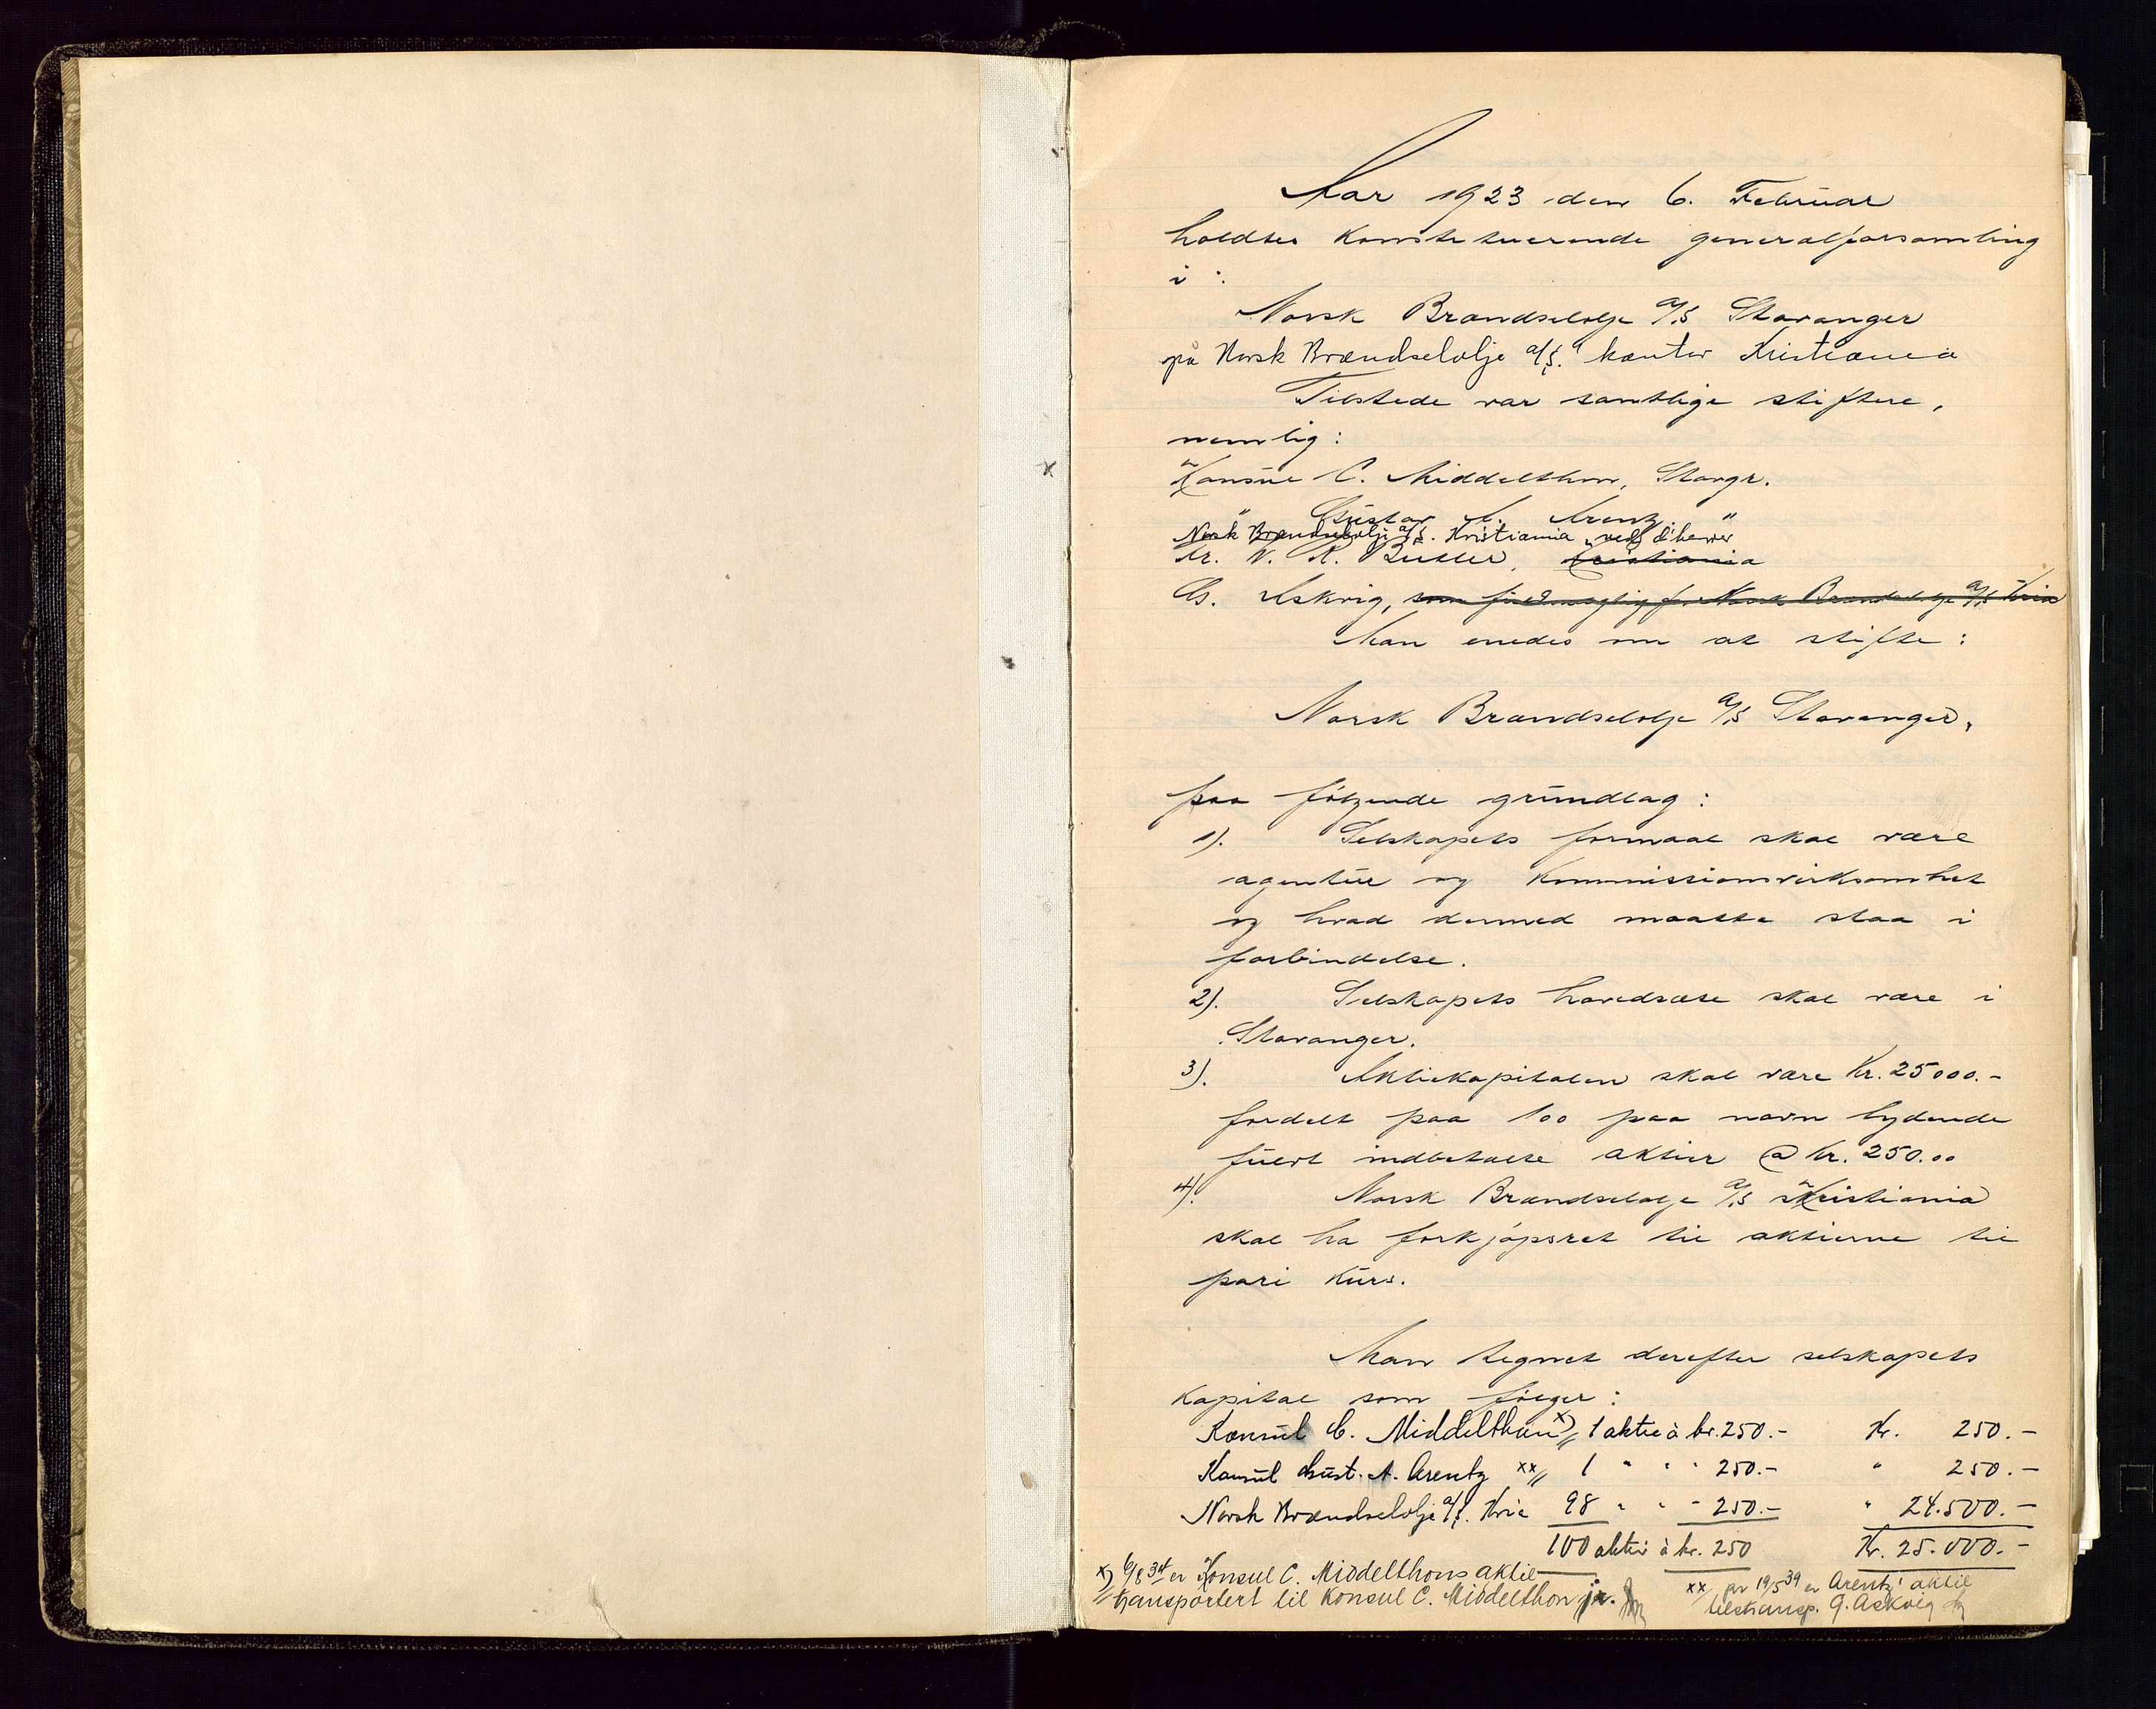 Aar 1923 den 6. Februar
holdtes konstituerende generalforsamling
i:
Norsk Brændselolje A/S Stavanger
på Norsk Brændselolje A/S. kontor Kristiania
Tilstede var samtlige stiftere,
nemlig:
Konsul C. Middelthon, Stavgr.
" Gustav A. Arentz "
Norsk Brændselolje A/S. Kristiania ved d'herrer
Kr. W. R. Butler, Kristiania
G. Askvig, som fuldmægtig for Norsk Brændselolje A/S Kria
Man enedes om at stifte:
Norsk Brændselolje A/S Stavanger,
paa følgende grundlag:
1). Selskapets formaal skal være
agentur og kommissionsvirksomhet
og hvad dermed maatte staa i
forbindelse.
2). Selskapets hovedsæte skal være i
Stavanger.
3). Aktiekapitalen skal være Kr. 25000.-
fordelt paa 100 paa navn lydende
fuldt indbetalte aktier @ Kr. 250.00
4). Norsk Brændselolje A/S Kristiania
skal ha forkjøpsret til aktierne til
pari kurs.
Man tegnet derefter selskapets
kapital som følger:
Konsul C. Middelthon x) 1 aktie à kr. 250.- Kr. 250.-
Konsul Gust. A. Arentz xx) 1 " " " 250.- " 250.-
Norsk Brændselolje A/S. Kria 98 " " " 250.- " 24.500.-
100 aktier à kr. 250 Kr. 25.000.-
x) 6/8 34 er Konsul C. Middelthons aktie
transportert til Konsul C. Middelthon jr.
xx) pr 19/5 39 er Arentz' aktie
transp. G. Askvig